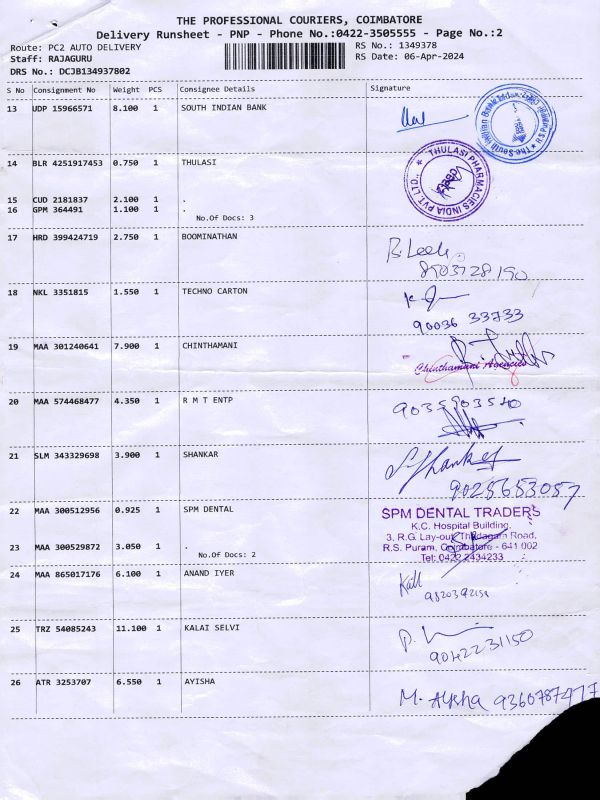 THE PROFESSIONAL COURIERS, COIMBATORE
Delivery Runsheet - PNP - Phone No.:0422-3505555 - Page No.:2
Route: PC2 AUTO DELIVERY
RS No.: 1349378
Staff: RAJAGURU
RS Date: 06-Apr-2024
DRS No.: DCJB134937802
S No Consignment No Weight PCS Consignee Details Signature
13 UDP 15966571 8.100 1 SOUTH INDIAN BANK
14 BLR 4251917453 0.750 1 THULASI
THULASI PHARMACIES INDIA PVT LTD.,
15 CUD 2181837 2.100 1 .
16 GPM 364491 1.100 1 .
No.Of Docs: 3
17 HRD 399424719 2.750 1 BOOMINATHAN
8903728190
18 NKL 3351815 1.550 1 TECHNO CARTON
90036 33733
19 MAA 301240641 7.900 1 CHINTHAMANI
Chinthamani Agencies
20 MAA 574468477 4.350 1 R M T ENTP
21 SLM 343329698 3.900 1 SHANKAR
9025653057
22 MAA 300512956 0.925 1 SPM DENTAL
SPM DENTAL TRADERS
K.C. Hospital Building,
3, R.G. Lay-out, Thadagam Road,
R.S. Puram, Coimbatore - 641 002
Tel: 0422 2434233
23 MAA 300529872 3.050 1 .
No.Of Docs: 2
24 MAA 865017176 6.100 1 ANAND IYER
25 TRZ 54085243 11.100 1 KALAI SELVI
9042231150
26 ATR 3253707 6.550 1 AYISHA
M. Aysha 9360787977